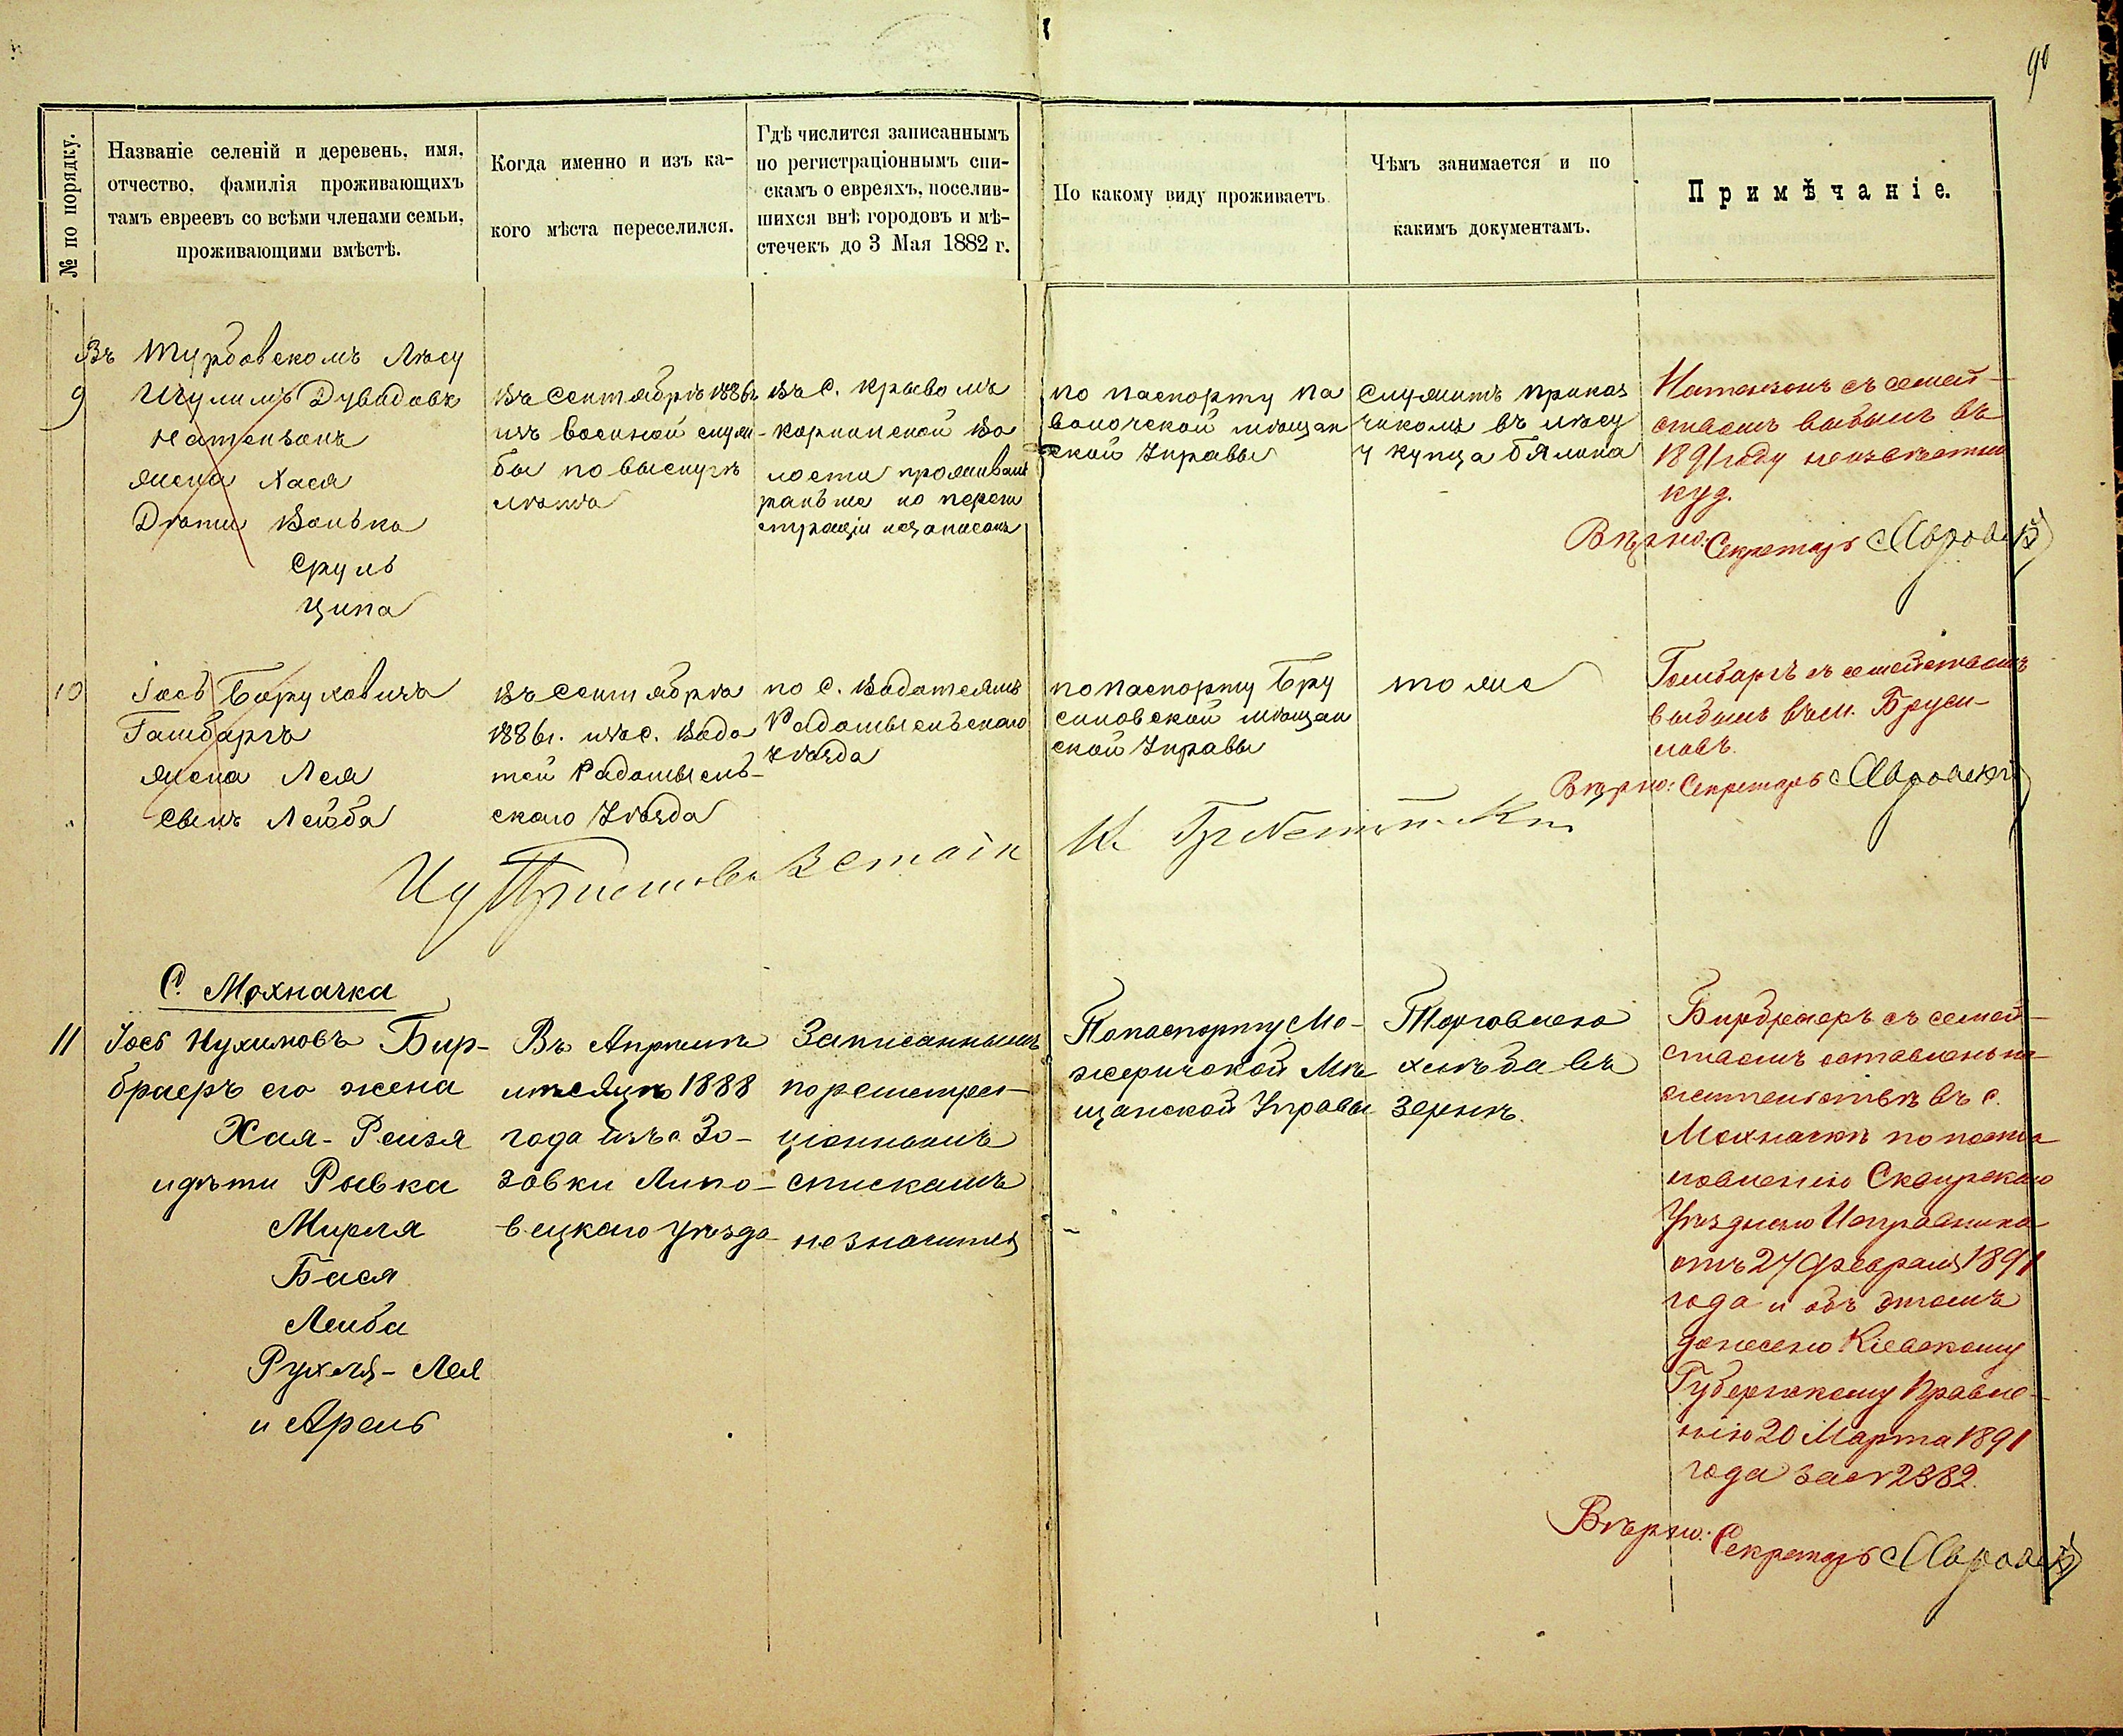 90
№ по порядку.
Названіе селеній и деревень, имя,
отчество, фамилія проживающихъ
тамъ евреевъ со всѣми членами семьи,
проживающими вмѣстѣ.
Когда именно и изъ ка-
кого мѣста переселился.
Гдѣ числится записаннымъ
по регистраціоннымъ спи-
скамъ о евреяхъ, поселив-
шихся внѣ городовъ и мѣ-
стечекъ до 3 Мая 1882 г.
По какому виду проживаетъ
Чѣмъ занимается и по
какимъ документамъ.
Примѣчаніе.
Въ Турбовскомъ Лѣсу
9
Натензонъ
жена Хася
Дѣти Волько
Сруль
Ципа
Въ Сентябрѣ 1886г
изъ военной служ-
бы по выслугѣ
лѣта
въ С. Кривомъ
Корнинской Во
лости проживалъ
раньше по регист
страціи не записанъ
по паспорту Па
волочской мѣщан
ской Управы
Служитъ приказ
чикомъ въ лѣсу
у купца Бялика
Натензонъ съ семей-
ствомъ выбылъ въ
1891 году неизвѣстно
куд.
Вѣрно: Секретарь
10
Іось Беруковичъ
Гамбаргъ
жена Лея
сынъ Лейба
Въ Сентябрѣ
1886г. изъ С. Вода
тей Радомысль-
скаго Уѣзда
по С. Водотеямъ
Радомысльскаго
Уѣзда
по паспорту Бру
силовской мѣщан
ской Управы
тоже
Гамбаргъ съ семействомъ
выбылъ въ м. Бруси-
ловъ.
Вѣрно: Секретарь
С. Мохначка
11
Іось Нухимовъ Бир-
браеръ его жена
Хая-Рейзя
и дѣти Рывка
Мирля
Бася
Лейба
Рухля-Лея
и Арель
Въ Апрѣлѣ
мѣсяцѣ 1888
года изъ с. Зо-
зовки Липо-
вецкаго уѣзда
Записаннымъ
по регистра-
ціоннымъ
спискамъ
не значится
По паспорту Мо-
жеричской Мѣ
щанской Управы
Торговлею
хлѣба въ
зернѣ.
Бирбраеръ съ семей-
ствомъ оставленъ на
жительствѣ въ с.
Мохначкѣ по поста
новленію Сквирскаго
Уѣзднаго Исправника
отъ 27 Февраля 1891
года и объ этомъ
донесено Кіевскому
Губернскому Правле-
нію 20 Марта 1891
года за № 2382.
Вѣрно: Секретарь